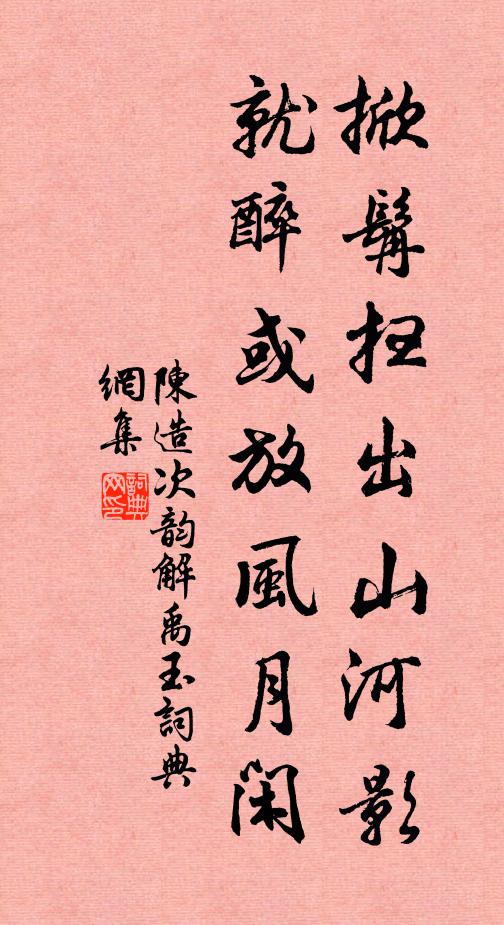 掀髯扫出山河影
就醉或放風月閑
陳造次韵解禹玉詞典
網集
詞典
网印